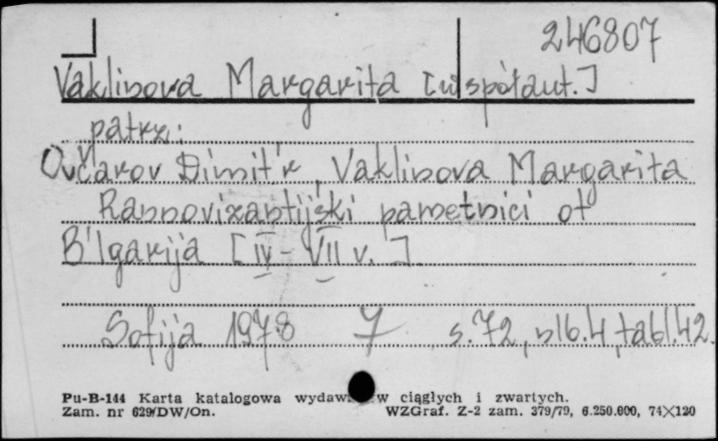 246807
Vaklinova Margarita [współaut.]
patrz:
Ovčarov Dimit'r, Vaklinova Margarita
Rannovizantijski pametnici ot
B'lgarija [IV-VII v.]
Sofija 1978 7 s.72, nlb.4, tabl.42.
Pu-B-144 Karta katalogowa wydawnictw ciągłych i zwartych.
Zam. nr 629/DW/On. WZGraf. Z-2 zam. 379/79, 6.250.000, 74×120